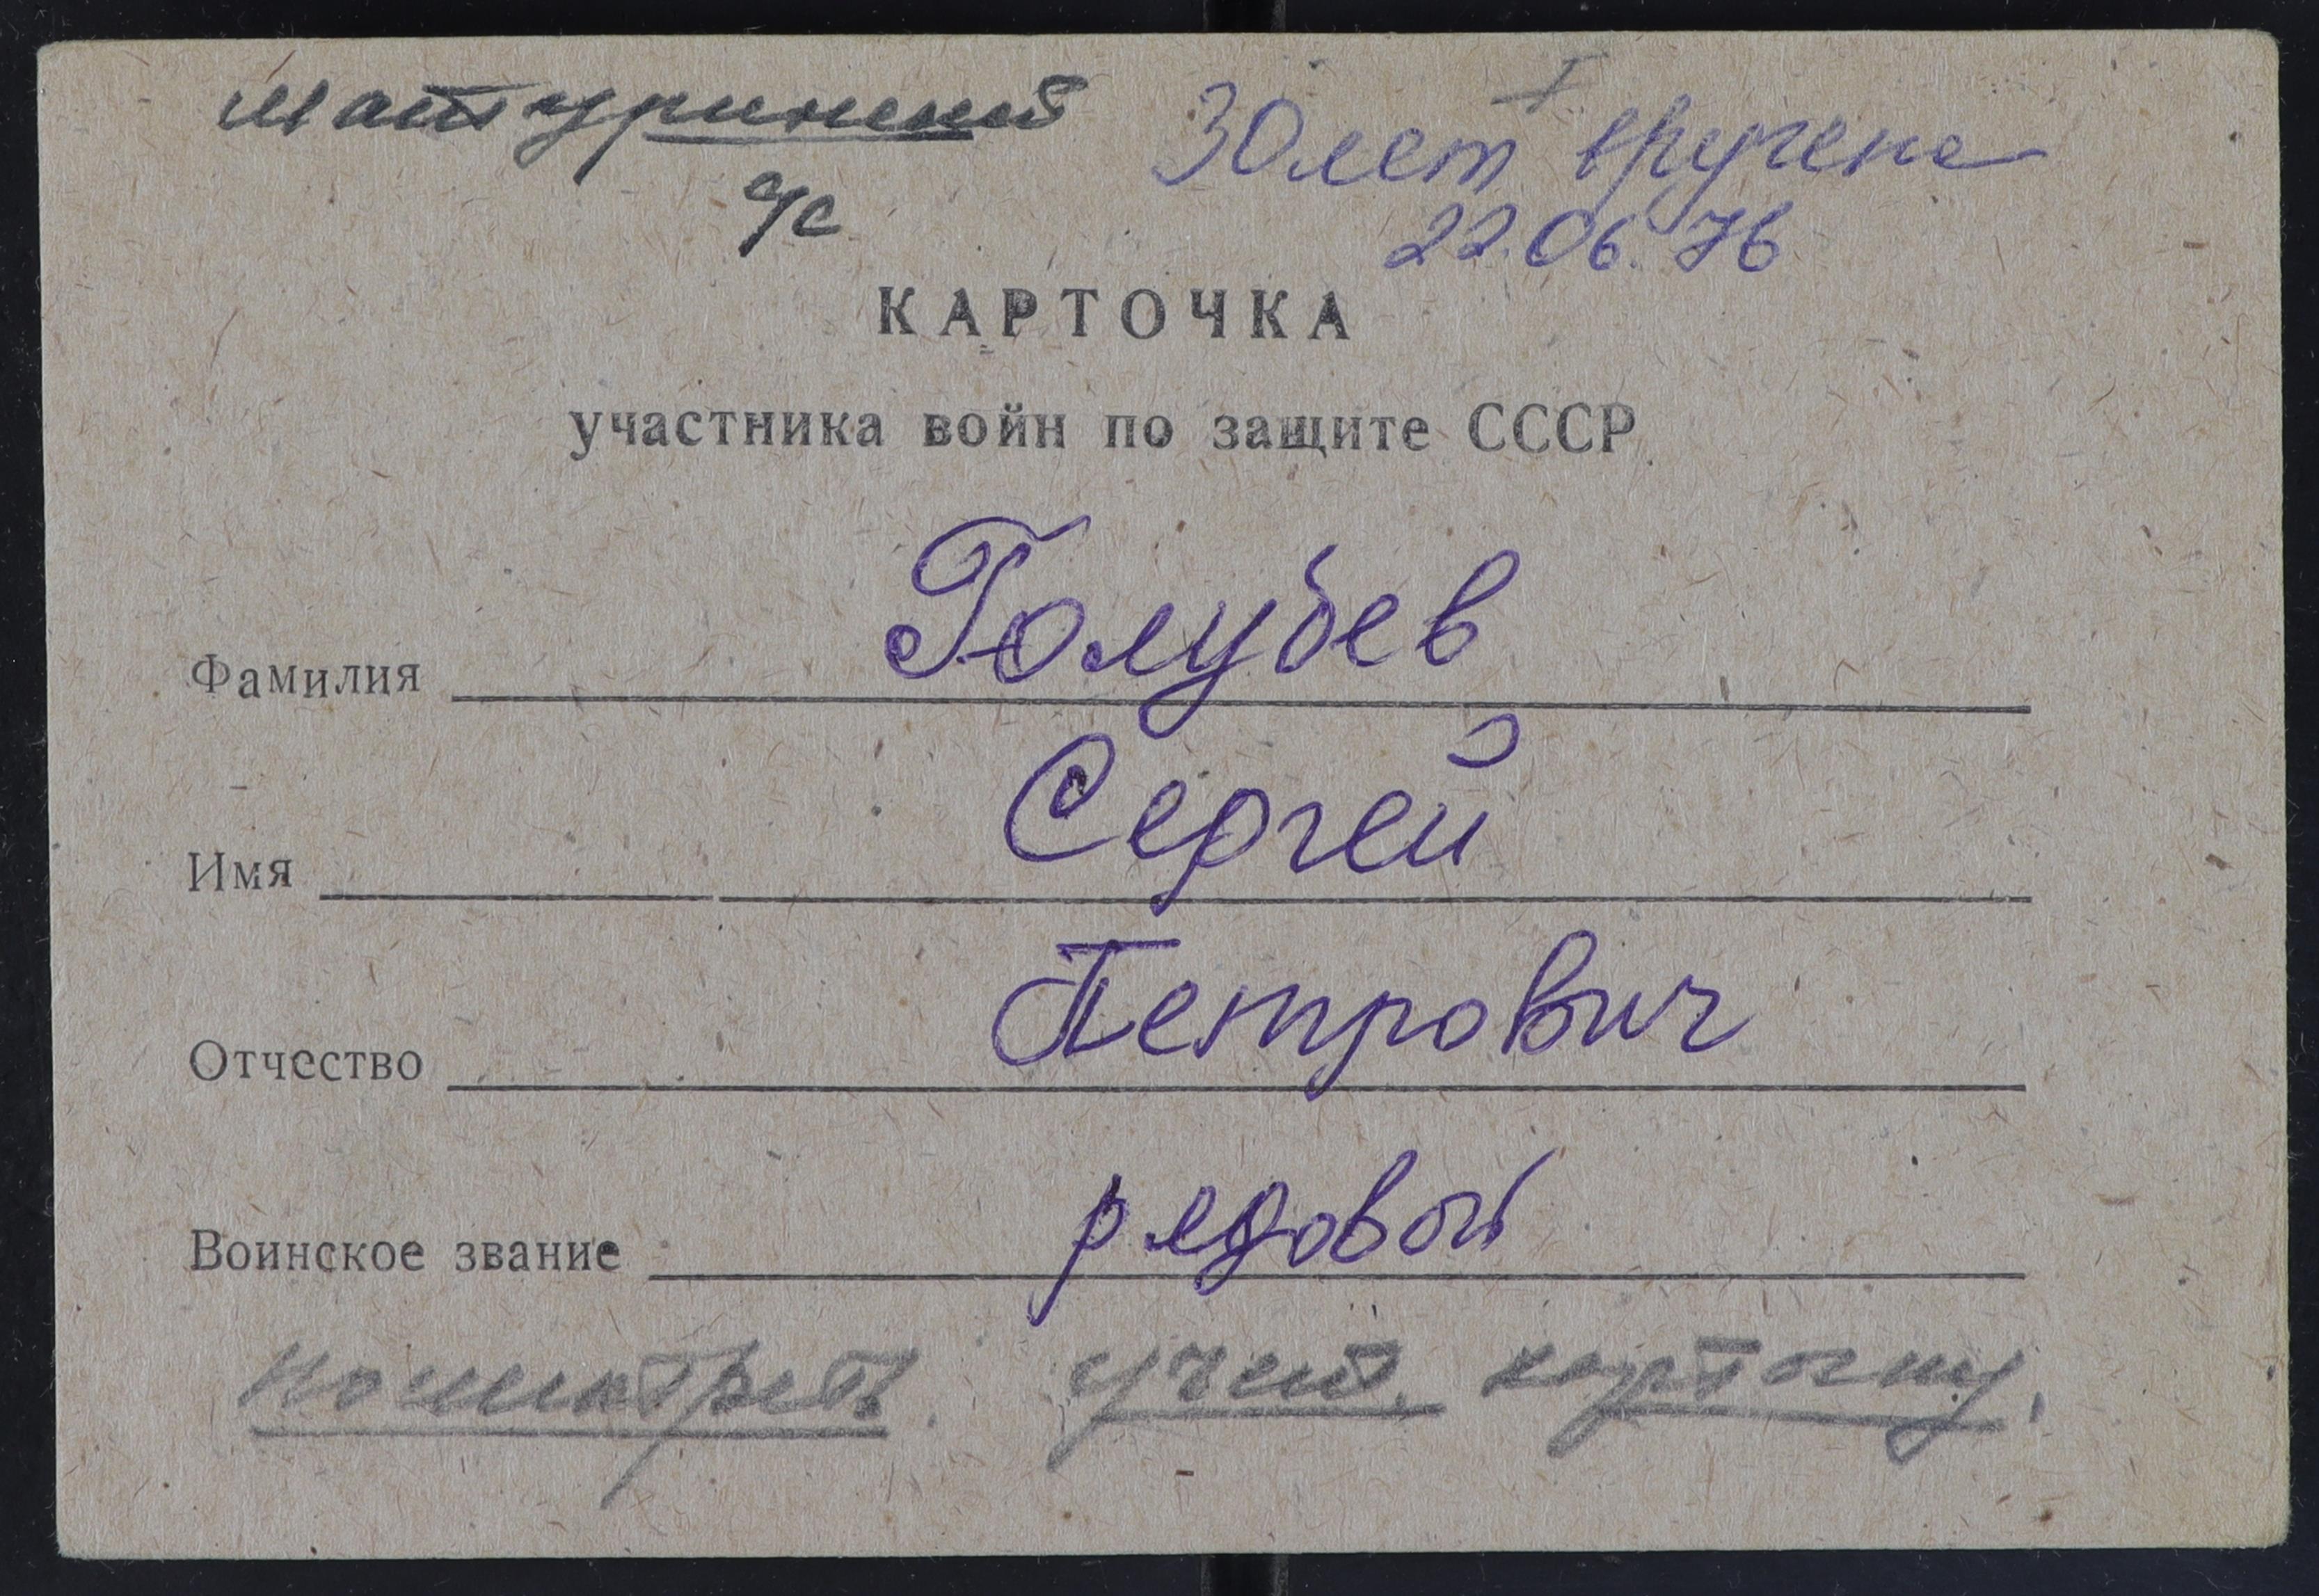 Матуринский 30 лет вручена
с/с 22.06.76
КАРТОЧКА
участника войн по защите СССР
Фамилия Голубев
Имя Сергей
Отчество Петрович
Воинское звание рядовой
посмотреть. учет. карточку.